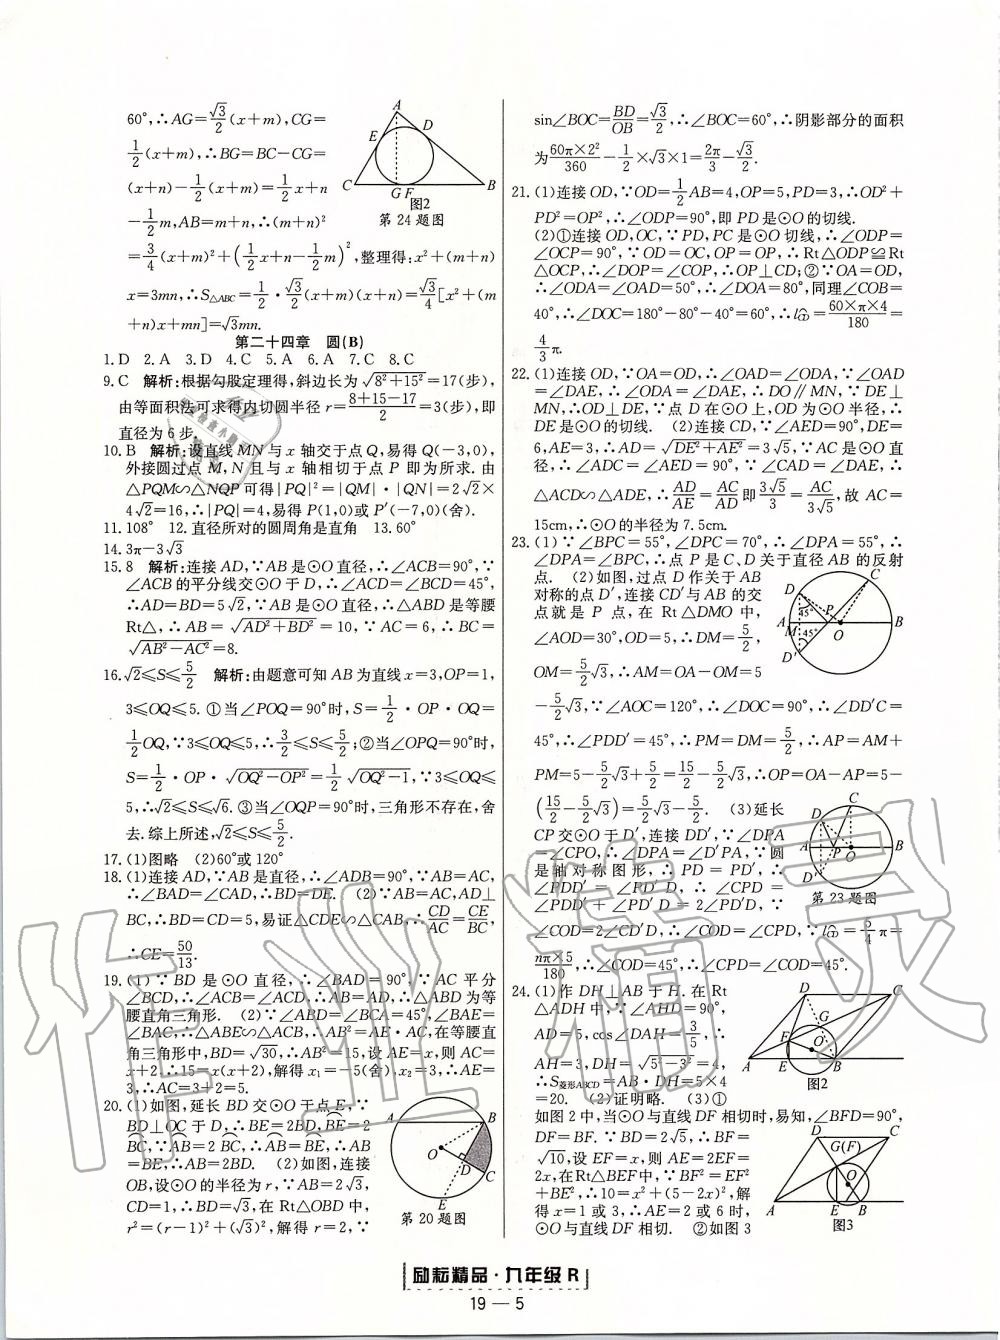 60°,∴AG=√3/2(x+m),CG=
1/2(x+m),∴BG=BC−CG=
(x+n)−1/2(x+m)=1/2x+n
−1/2m,AB=m+n,∴(m+n)²
=3/4(x+m)²+(1/2x+n−1/2m)²,整理得:x²+(m+n)
x=3mn,∴S△ABC=1/2·√3/2(x+m)(x+n)=√3/4[x²+(m
+n)x+mn]=√3mn.
A
E
D
C
G F
B
图2
第24题图
第二十四章 圆(B)
1.D 2.A 3.D 4.C 5.A 6.A 7.C 8.C
9.C 解析:根据勾股定理得,斜边长为√(8²+15²)=17(步),
由等面积法可求得内切圆半径r=(8+15−17)/2=3(步),即
直径为6步.
10.B 解析:设直线MN与x轴交于点Q,易得Q(−3,0),
外接圆过点M,N且与x轴相切于点P即为所求.由
△PQM∽△NQP可得|PQ|²=|QM|·|QN|=2√2×
4√2=16,∴|PQ|=4,易得P(1,0)或P′(−7,0)(舍).
11.108° 12.直径所对的圆周角是直角 13.60°
14.3π−3√3
15.8 解析:连接AD,∵AB是⊙O直径,∴∠ACB=90°,∵
∠ACB的平分线交⊙O于D,∴∠ACD=∠BCD=45°,
∴AD=BD=5√2,∵AB是⊙O直径,∴△ABD是等腰
Rt△,∴AB=√(AD²+BD²)=10,∵AC=6,∴BC=
√(AB²−AC²)=8.
16.√2≤S≤5/2 解析:由题意可知AB为直线x=3,OP=1,
3≤OQ≤5.①当∠POQ=90°时,S=1/2·OP·OQ=
1/2OQ,∵3≤OQ≤5,∴3/2≤S≤5/2;②当∠OPQ=90°时,
S=1/2·OP·√(OQ²−OP²)=1/2√(OQ²−1),∵3≤OQ≤
5,∴√2≤S≤√6.③当∠OQP=90°时,三角形不存在,舍
去.综上所述,√2≤S≤5/2.
17.(1)图略 (2)60°或120°
18.(1)连接AD,∵AB是直径,∴∠ADB=90°,∵AB=AC,
∴∠BAD=∠CAD,∴BD=DE. (2)∵AB=AC,AD⊥
BC,∴BD=CD=5,易证△CDE∽△CAB,∴CD/AC=CE/BC,
∴CE=50/13.
19.(1)∵BD是⊙O直径,∴∠BAD=90°∵AC平分
∠BCD,∴∠ACD=∠ACB,∴AB=AD,∴△ABD为等
腰直角三角形. (2)∵∠ABD=∠BCA=45°,∠BAE=
∠BAC,∴△ABE∽△ACB,∴AB²=AE·AC,在等腰直
角三角形中,BD=√30,∴AB²=15,设AE=x,则AC=
x+2,∴15=x(x+2),解得x₁=−5(舍),x₂=3,∴AE=
3,∴AC=3+2=5.
20.(1)如图,延长BD交⊙O于点E,∵
BD⊥OC于D,∴BE=2BD,BE=2
BC,∵AB=2BC,∴AB=BE,∴AB
=BE,∴AB=2BD. (2)如图,连接
OB,设⊙O的半径为r,∵AB=2√3,
CD=1,∴BD=√3,在Rt△OBD中,
r²=(r−1)²+(√3)²,解得r=2,∵
A
B
O
D
E
C
第20题图
sin∠BOC=BD/OB=√3/2,∴∠BOC=60°,∴阴影部分的面积
为60π×2²/360−1/2×√3×1=2π/3−√3/2.
21.(1)连接OD,∵OD=1/2AB=4,OP=5,PD=3,∴OD²+
PD²=OP²,∴∠ODP=90°,即PD是⊙O的切线.
(2)①连接OD,OC,∵PD,PC是⊙O切线,∴∠ODP=
∠OCP=90°,∵OD=OC,OP=OP,∴Rt△ODP≌Rt
△OCP,∴∠DOP=∠COP,∴OP⊥CD;②∵OA=OD,
∴∠ODA=∠OAD=50°,∴∠DOA=80°,同理∠COB=
40°,∴∠DOC=180°−80°−40°=60°,∴lCD=60×π×4/180=
4/3π.
22.(1)连接OD,∵OA=OD,∴∠OAD=∠ODA,∵∠OAD
=∠DAE,∴∠ODA=∠DAE,∴DO∥MN,∵DE⊥
MN,∴OD⊥DE,∵点D在⊙O上,OD为⊙O半径,∴
DE是⊙O的切线. (2)连接CD,∵∠AED=90°,DE=
6,AE=3,∴AD=√(DE²+AE²)=3√5,∵AC是⊙O直
径,∴∠ADC=∠AED=90°,∵∠CAD=∠DAE,∴
△ACD∽△ADE,∴AD/AE=AC/AD即3√5/3=AC/3√5,故AC=
15cm,∴⊙O的半径为7.5cm.
23.(1)∵∠BPC=55°,∠DPC=70°,∴∠DPA=55°,∴
∠DPA=∠BPC,∴点P是C、D关于直径AB的反射
点. (2)如图,过点D作关于AB
对称的点D′,连接CD′与AB的交
点就是P点,在Rt△DMO中,
∠AOD=30°,OD=5,∴DM=5/2,
OM=5/2√3,∴AM=OA−OM=5
−5/2√3,∵∠AOC=120°,∴∠DOC=90°,∴∠DD′C=
45°,∴∠PDD′=45°,∴PM=DM=5/2,∴AP=AM+
PM=5−5/2√3+5/2=15/2−5/2√3,∴OP=OA−AP=5−
(15/2−5/2√3)=5/2√3−5/2. (3)延长
CP交⊙O于D′,连接DD′,∵∠DPA
=∠CPO,∴∠DPA=∠D′PA,∵圆
是轴对称图形,∴PD=PD′,∴
∠PDD′=∠PD′D,∴∠CPD=
∠PDD′+∠PD′D=2∠PD′D,∵
∠COD=2∠CD′D,∴∠COD=∠CPD,∵lCD=5/4π=
nπ×5/180,∴∠COD=45°,∴∠CPD=∠COD=45°.
D
C
45°
P
A
M
45°
O
B
D′
D
A
P
O
B
第23题图
24.(1)作DH⊥AB于H.在Rt
△ADH中,∵∠AHD=90°,
AD=5,cos∠DAH=3/5,∴
AH=3,DH=√(5²−3²)=4,
∴S菱形ABCD=AB·DH=5×4
=20. (2)证明略. (3)①
如图2中,当⊙O与直线DF相切时,易知,∠BFD=90°,
DF=BF.∵BD=2√5,∴BF=
√10,设EF=x,则AE=2EF=
2x,在Rt△BEF中,∵BF²=EF²
+BE²,∴10=x²+(5−2x)²,解
得x=1或3,∴AE=2或6时,
⊙O与直线DF相切. ②如图3
D
C
G
F
O
A
E
B
图2
D
C
G(F)
O
A
E
B
图3
励耘精品·九年级R
19 — 5
作业精灵